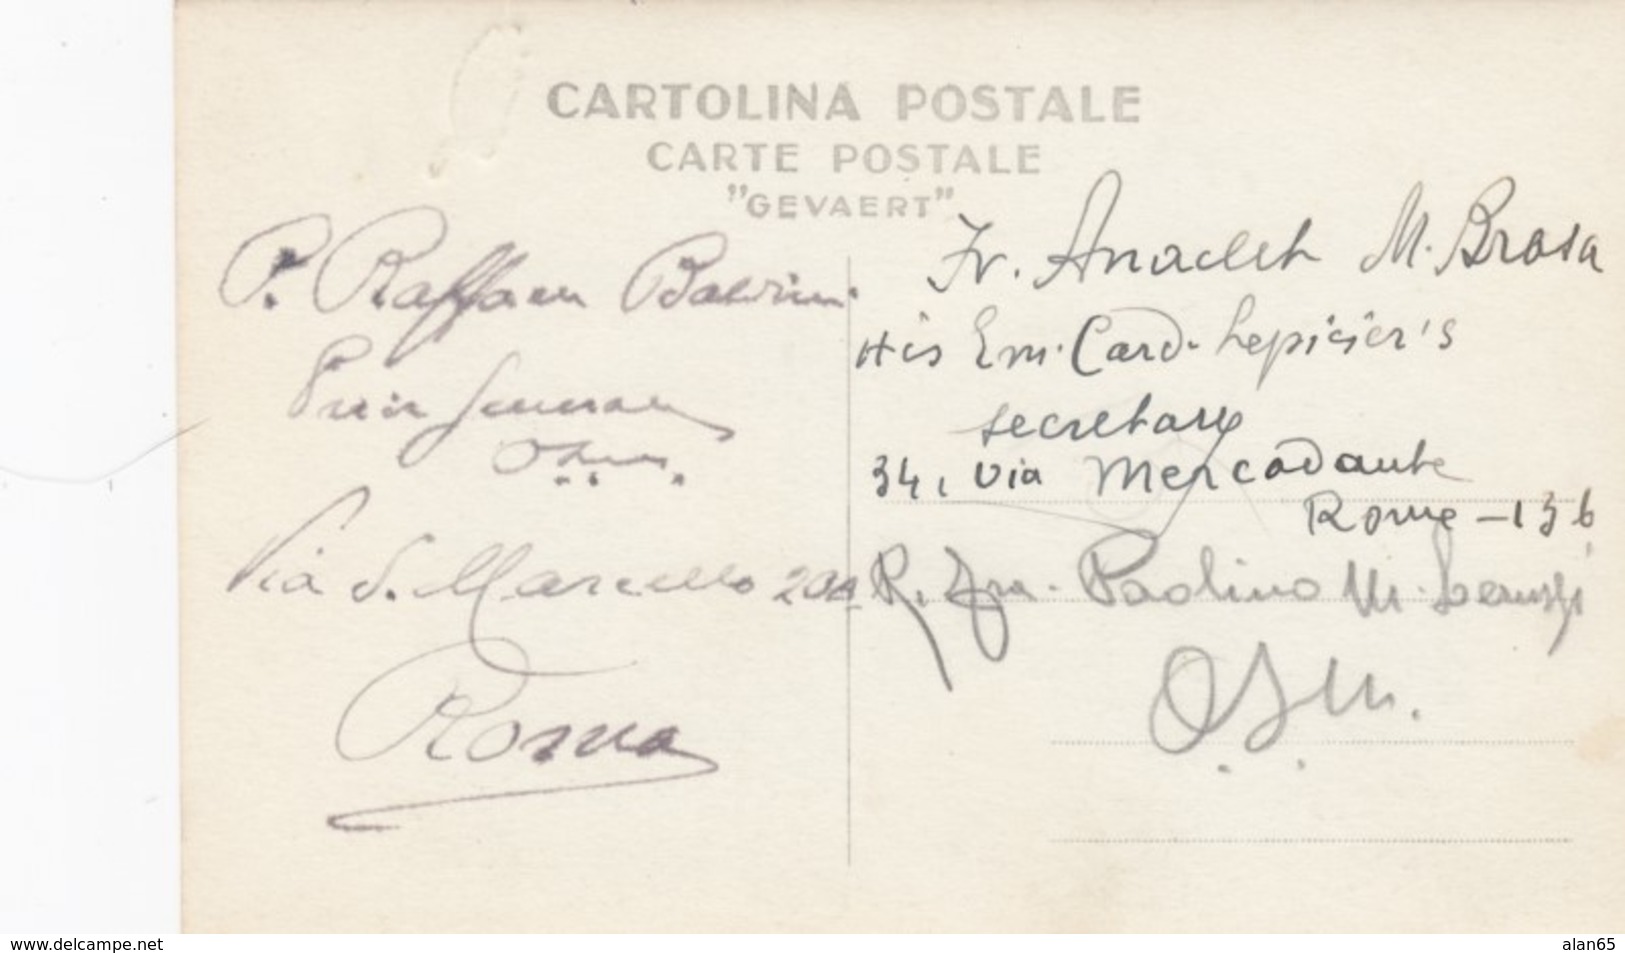 CARTOLINA POSTALE
CARTE POSTALE
"GEVAERT"
P. Raffaele Baldini
Prior Generale
O.S.M.
Via S. Marcello 20A
Roma
Fr. Anaclet M. Brosa
His Em. Card. Lepicier's
secretary
34, Via Mercadante
Rome – 136
P. Fra. Paolino M.
O.S.M.
www.delcampe.net
alan65